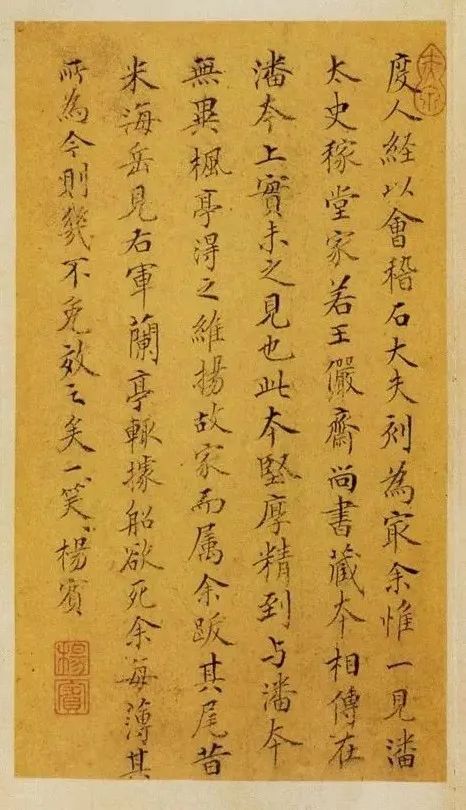 度人經以會稽石大夫刻為最余惟一見潘
太史稼堂家若王儼齋尚書藏本相傳在
潘本上實未之見也此本堅厚精到与潘本
無異楓亭得之維揚故家而属余跋其尾昔
米海岳見右軍蘭亭輙據船欲死余每薄其
所為今則幾不免效之矣一笑楊賓
楊賓